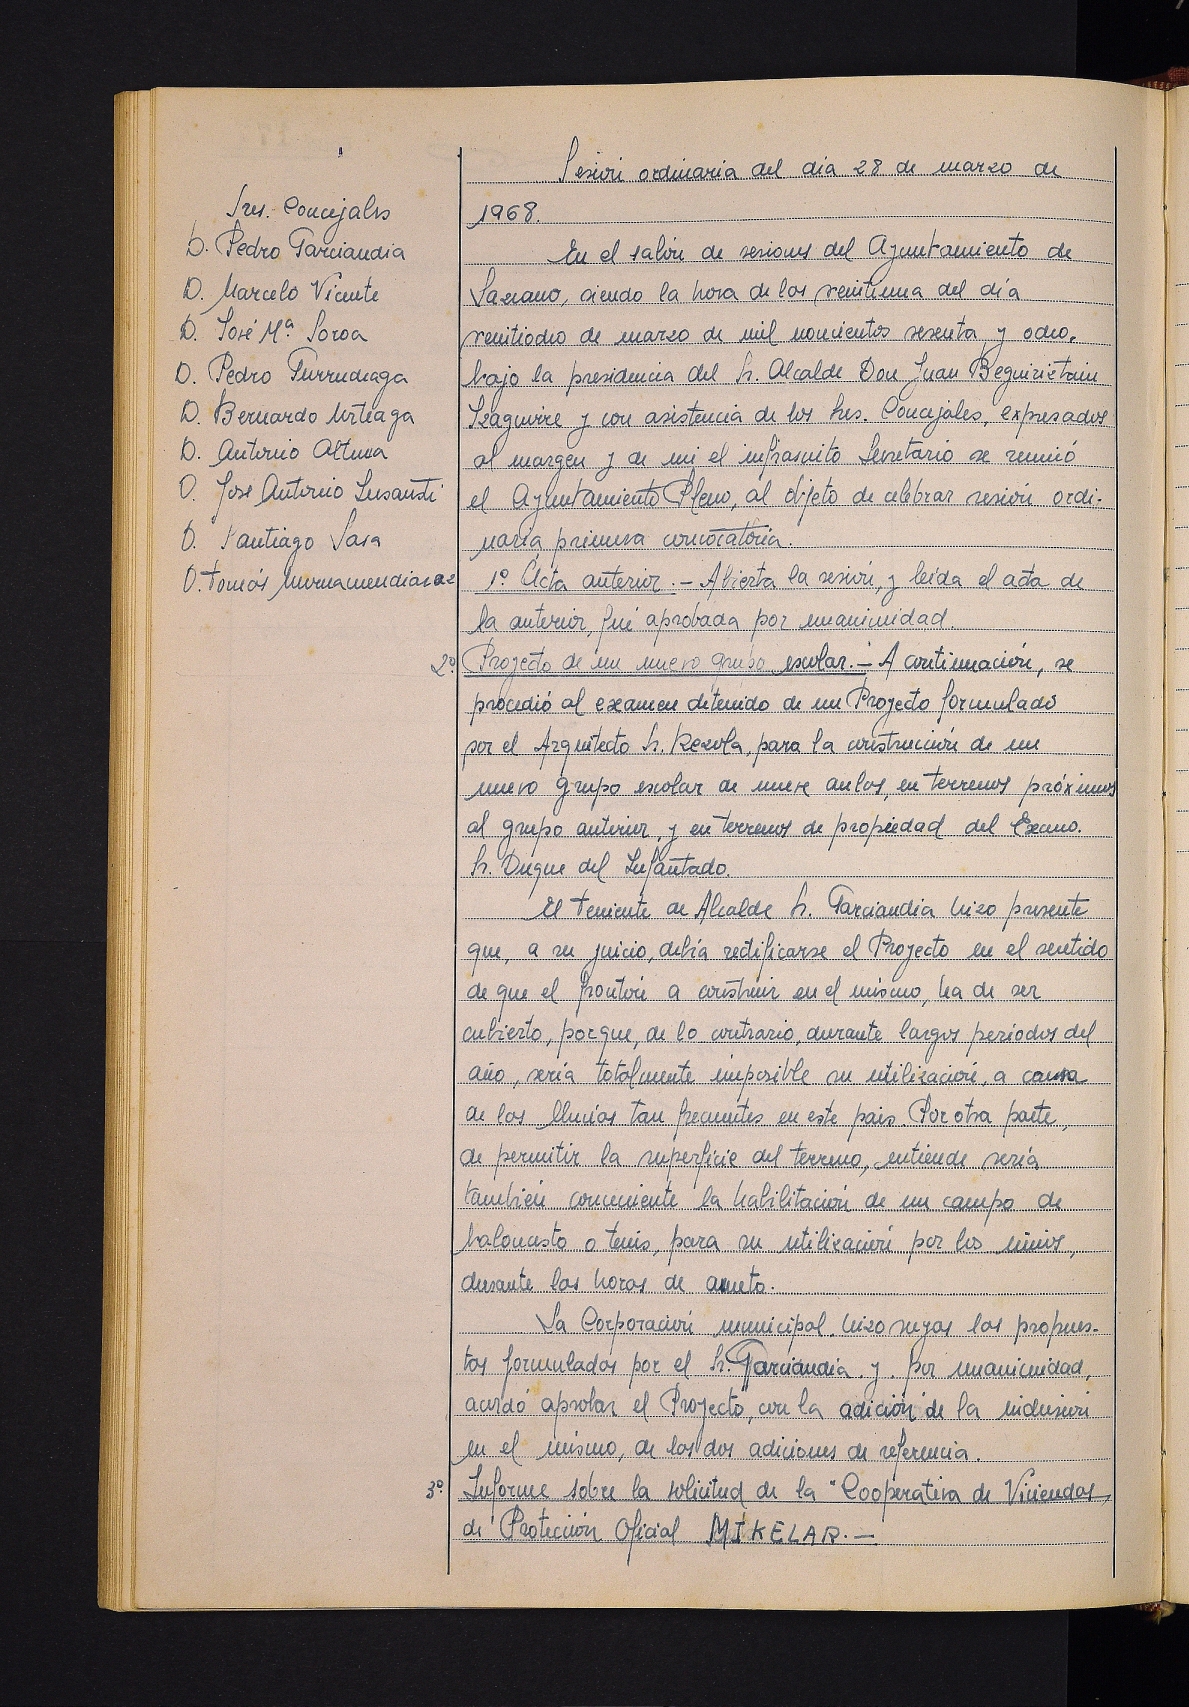 Sesión ordinaria del dia 28 de marzo de
1968.
Sres. Concejales
D. Pedro Garciandia
D. Marcelo Vicente
D. José Mª Soroa
D. Pedro Turrudiaga
D. Bernardo Urteaga
D. Antonio Altuna
D. Jose Antonio Insausti
D. Santiago Sasa
D. Tomás
En el salón de sesiones del Ayuntamiento de
Lazcano, siendo la hora de las veintiuna del día
veintiocho de marzo de mil novecientos sesenta y ocho,
bajo la presidencia del Sr. Alcalde Don Juan Beguiristain
Izaguirre y con asistencia de los Sres. Concejales, expresados
al margen y de mi el infrascrito Secretario se reunió
el Ayuntamiento Pleno, al objeto de celebrar sesión ordi-
naria primera convocatoria.
1º Acta anterior.- Abierta la sesión, y leída el acta de
la anterior, fué aprobada por unanimidad.
2º Proyecto de un nuevo grupo escolar.- A continuación, se
procedió al examen detenido de un Proyecto formulado
por el Arquitecto Sr. Rezola, para la construcción de un
nuevo grupo escolar de nueve aulas, en terrenos próximos
al grupo anterior y en terrenos de propiedad del Excmo.
Sr. Duque del Infantado.
El teniente de Alcalde Sr. Garciandia hizo presente
que, a su juicio, debía rectificarse el Proyecto en el sentido
de que el frontón a construir en el mismo, ha de ser
cubierto, porque, de lo contrario, durante largos periodos del
año, sería totalmente imposible su utilización, a causa
de las lluvias tan frecuentes en este pais. Por otra parte,
de permitir la superficie del terreno, entiende sería
también conveniente la habilitación de un campo de
baloncesto o tenis, para su utilización por los niños,
durante las horas de asueto.
La Corporación municipal hizo suyas las propues-
tas formuladas por el Sr. Garciandia y por unanimidad,
acordó aprobar el Proyecto, con la adición de la inclusión
en el mismo, de las dos adiciones de referencia.
3º Informe sobre la solicitud de la "Cooperativa de Viviendas,
de Protección Oficial MIKELAR.-